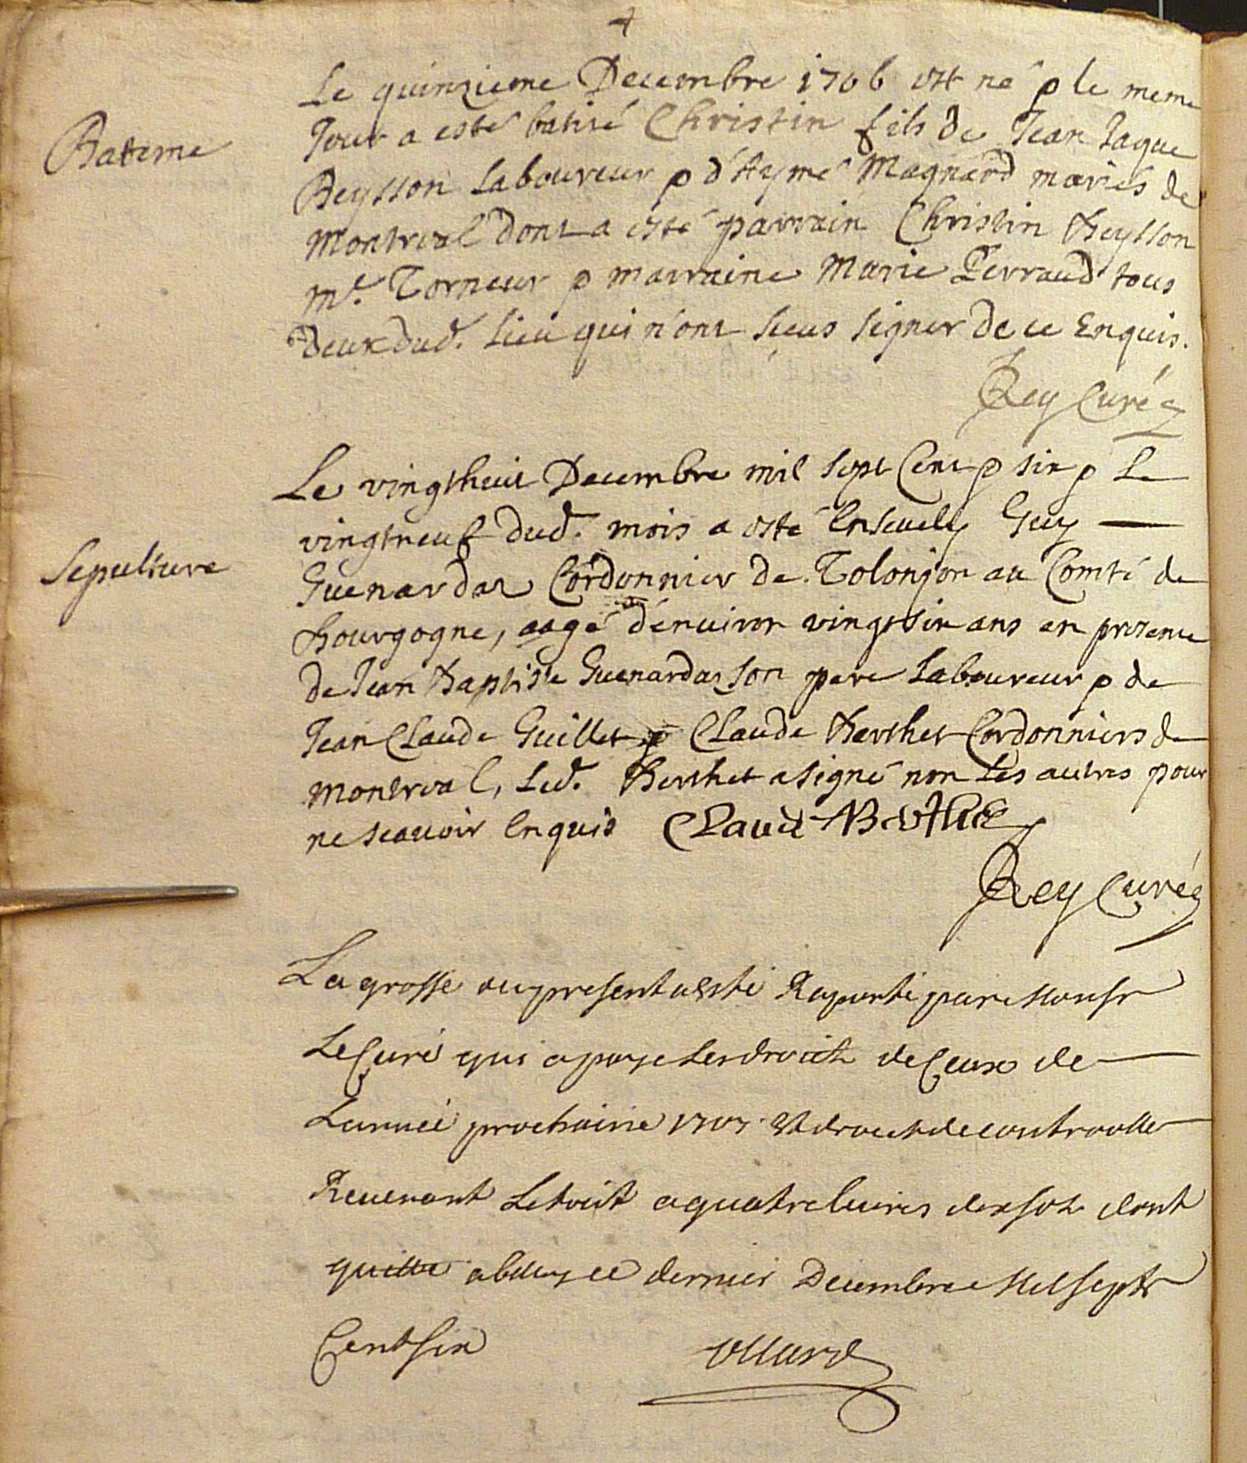 4
Le quinzieme Decembre 1706 est né & le meme
Bateme
Jour a esté batisé Christin fils de Jean Jaque
Beysson Laboureur & d'Aymé Magnard mariés de
Montreal dont a esté parrain Christin Beysson
Me. Torneur & marraine Marie Perraud tous
deux dud. Lieu qui n'ont sceus signer de ce Enquis.
Rey Curé
Le vingthuit Decembre mil sept Cent & six & Le
vingtneuf dud. mois a esté Ensevely Guy
Sepulture
Guenardas Cordonnier de Tolonjon au Comté de
bourgogne, aagé d'environ vingtsix ans en presence
de Jean Baptiste Guenardas son pere Laboureur & de
Jean Claude Guillet & Claude Berthet Cordonniers de
Montreal, Led. Berthet a signé non Les autres pour
ne scavoir Enquis Claude Berthet
Rey Curé
La grosse du present a esté Raporté par Monsr
Le Curé qui a paye Les droict de Ceux de
Lanneé prochaine 1707 et droict de controolle
Revenant Le tout a quatre livres dix solz dont
quitte ce dernier Decembre Mil sept
Cent six